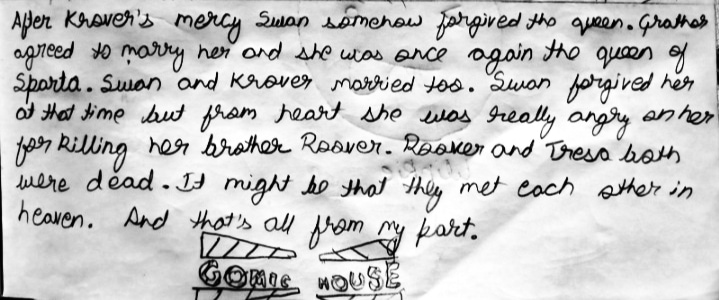 After Krover's mercy Swan somehow forgived the queen. Grathor
agreed to marry her and she was once again the queen of
Sparta. Swan and Krover married too. Swan forgived her
at that time but from heart she was really angry on her
for killing her brother Roover. Roover and Tresa both
were dead. It might be that they met each other in
heaven. And that's all from my part.
COMIC HOUSE